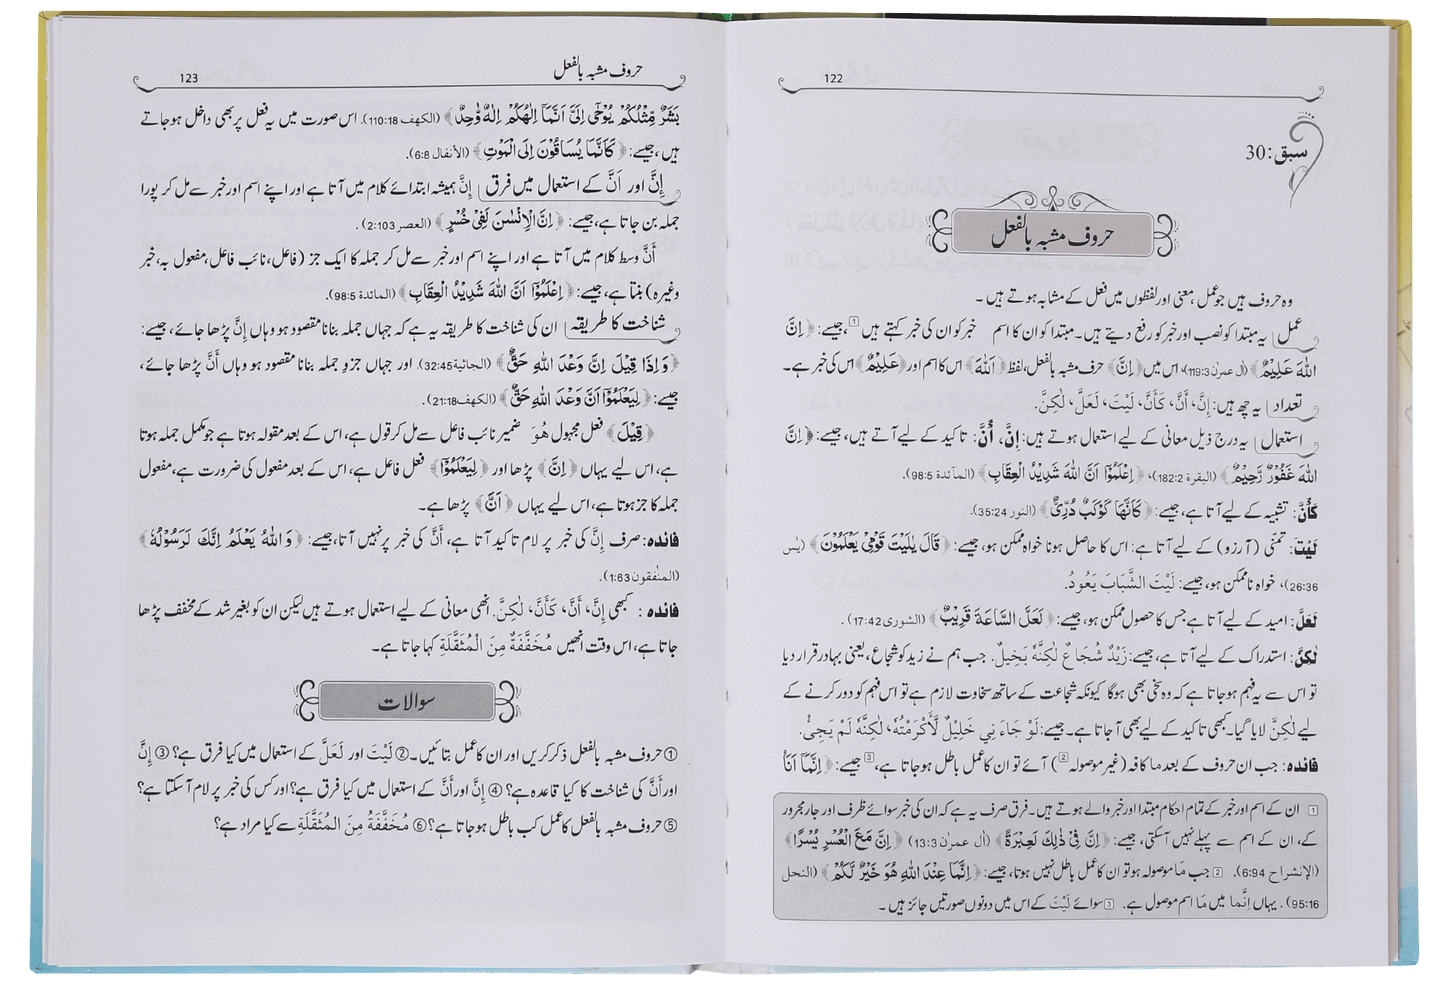 122
سبق:30
حروف مشبہ بالفعل
وہ حروف ہیں جو عمل، معنی اور لفظوں میں فعل کے مشابہ ہوتے ہیں۔
عمل یہ مبتدا کو نصب اور خبر کو رفع دیتے ہیں۔ مبتدا کو ان کا اسم خبر کو ان کی خبر کہتے ہیں 1، جیسے: ﴿اِنَّ
اللّٰهَ عَلِيْمٌ﴾ (اٰل عمرٰن 119:3)، اس میں ﴿اِنَّ﴾ حرف مشبہ بالفعل، لفظ ﴿اَللّٰهَ﴾ اس کا اسم اور ﴿عَلِيْمٌ﴾ اس کی خبر ہے۔
تعداد یہ چھ ہیں: إِنَّ، أَنَّ، كَأَنَّ، لَيْتَ، لَعَلَّ، لٰكِنَّ.
استعمال یہ درج ذیل معانی کے لیے استعمال ہوتے ہیں: إِنَّ، أَنَّ: تاکید کے لیے آتے ہیں، جیسے: ﴿اِنَّ
اللّٰهَ غَفُوْرٌ رَّحِيْمٌ﴾ (البقرة 182:2)، ﴿اِعْلَمُوْٓا اَنَّ اللّٰهَ شَدِيْدُ الْعِقَابِ﴾ (المآئدة 98:5).
كَأَنَّ: تشبیہ کے لیے آتا ہے، جیسے: ﴿كَاَنَّهَا كَوْكَبٌ دُرِّيٌّ﴾ (النور 35:24).
لَيْتَ: تمنّی (آرزو) کے لیے آتا ہے: اس کا حاصل ہونا خواہ ممکن ہو، جیسے: ﴿قَالَ يٰلَيْتَ قَوْمِيْ يَعْلَمُوْنَ﴾ (يٰس
26:36)، خواہ ناممکن ہو، جیسے: لَيْتَ الشَّبَابَ يَعُودُ.
لَعَلَّ: امید کے لیے آتا ہے جس کا حصول ممکن ہو، جیسے: ﴿لَعَلَّ السَّاعَةَ قَرِيْبٌ﴾ (الشورى 17:42).
لٰكِنَّ: استدراک کے لیے آتا ہے، جیسے: زَيْدٌ شُجَاعٌ لٰكِنَّهُ بَخِيلٌ. جب ہم نے زید کو شجاع، یعنی بہادر قرار دیا
تو اس سے یہ فہم ہو جاتا ہے کہ وہ سخی بھی ہوگا کیونکہ شجاعت کے ساتھ سخاوت لازم ہے تو اس فہم کو دور کرنے کے
لیے لٰكِنَّ لایا گیا۔ کبھی تاکید کے لیے بھی آجاتا ہے۔ جیسے: لَوْ جَاءَنِي خَلِيلٌ لَّأَكْرَمْتُهُ، لٰكِنَّهُ لَمْ يَجِئْ.
فائدہ: جب ان حروف کے بعد ما کافہ (غیر موصولہ 2) آئے تو ان کا عمل باطل ہو جاتا ہے، 3 جیسے: ﴿اِنَّمَآ اَنَا
1 ان کے اسم اور خبر کے تمام احکام مبتدا اور خبر والے ہوتے ہیں۔ فرق صرف یہ ہے کہ ان کی خبر سوائے ظرف اور جار مجرور
کے، ان کے اسم سے پہلے نہیں آسکتی، جیسے: ﴿اِنَّ فِيْ ذٰلِكَ لَعِبْرَةً﴾ (اٰل عمرٰن 13:3) ﴿اِنَّ مَعَ الْعُسْرِ يُسْرًا﴾
(الإنشراح 6:94). 2 جب مَا موصولہ ہو تو ان کا عمل باطل نہیں ہوتا، جیسے: ﴿اِنَّمَا عِنْدَ اللّٰهِ هُوَ خَيْرٌ لَّكُمْ﴾ (النحل
95:16). یہاں إِنَّمَا میں مَا اسم موصول ہے۔ 3 سوائے لَيْتَ کے اس میں دونوں صورتیں جائز ہیں۔
حروف مشبہ بالفعل
123
بَشَرٌ مِّثْلُكُمْ يُوْحٰٓى اِلَيَّ اَنَّمَآ اِلٰهُكُمْ اِلٰهٌ وَّاحِدٌ﴾ (الكهف 110:18). اس صورت میں یہ فعل پر بھی داخل ہو جاتے
ہیں، جیسے: ﴿كَاَنَّمَا يُسَاقُوْنَ اِلَى الْمَوْتِ﴾ (الأنفال 6:8).
إِنَّ اور أَنَّ کے استعمال میں فرق إِنَّ ہمیشہ ابتدائے کلام میں آتا ہے اور اپنے اسم اور خبر سے مل کر پورا
جملہ بن جاتا ہے، جیسے: ﴿اِنَّ الْاِنْسٰنَ لَفِيْ خُسْرٍ﴾ (العصر 2:103).
أَنَّ وسط کلام میں آتا ہے اور اپنے اسم اور خبر سے مل کر جملہ کا ایک جز (فاعل، نائب فاعل، مفعول بہ، خبر
وغیرہ) بنتا ہے، جیسے: ﴿اِعْلَمُوْٓا اَنَّ اللّٰهَ شَدِيْدُ الْعِقَابِ﴾ (المائدة 98:5).
شناخت کا طریقہ ان کی شناخت کا طریقہ یہ ہے کہ جہاں جملہ بنانا مقصود ہو وہاں إِنَّ پڑھا جائے، جیسے:
﴿وَاِذَا قِيْلَ اِنَّ وَعْدَ اللّٰهِ حَقٌّ﴾ (الجاثية 32:45). اور جہاں جزوِ جملہ بنانا مقصود ہو وہاں أَنَّ پڑھا جائے،
جیسے: ﴿لِيَعْلَمُوْٓا اَنَّ وَعْدَ اللّٰهِ حَقٌّ﴾ (الكهف 21:18).
﴿قِيْلَ﴾ فعل مجہول هُوَ ضمیر نائب فاعل سے مل کر قول ہے، اس کے بعد مقولہ ہوتا ہے جو مکمل جملہ ہوتا
ہے، اس لیے یہاں ﴿اِنَّ﴾ پڑھا اور ﴿لِيَعْلَمُوْٓا﴾ فعل فاعل ہے، اس کے بعد مفعول کی ضرورت ہے، مفعول
جملہ کا جز ہوتا ہے، اس لیے یہاں ﴿اَنَّ﴾ پڑھا ہے۔
فائدہ: صرف إِنَّ کی خبر پر لام تاکید آتا ہے، أَنَّ کی خبر پر نہیں آتا، جیسے: ﴿وَاللّٰهُ يَعْلَمُ اِنَّكَ لَرَسُوْلُهٗ﴾
(المنٰفقون 1:63).
فائدہ: کبھی إِنَّ، أَنَّ، كَأَنَّ، لٰكِنَّ. انھی معانی کے لیے استعمال ہوتے ہیں لیکن ان کو بغیر شد کے مخفف پڑھا
جاتا ہے، اس وقت انھیں مُخَفَّفَةٌ مِنَ الْمُثَقَّلَةِ کہا جاتا ہے۔
سوالات
① حروف مشبہ بالفعل ذکر کریں اور ان کا عمل بتائیں۔ ② لَيْتَ اور لَعَلَّ کے استعمال میں کیا فرق ہے؟ ③ إِنَّ
اور أَنَّ کی شناخت کا کیا قاعدہ ہے؟ ④ إِنَّ اور أَنَّ کے استعمال میں کیا فرق ہے؟ اور کس کی خبر پر لام آسکتا ہے؟
⑤ حروف مشبہ بالفعل کا عمل کب باطل ہو جاتا ہے؟ ⑥ مُخَفَّفَةٌ مِنَ الْمُثَقَّلَةِ سے کیا مراد ہے؟